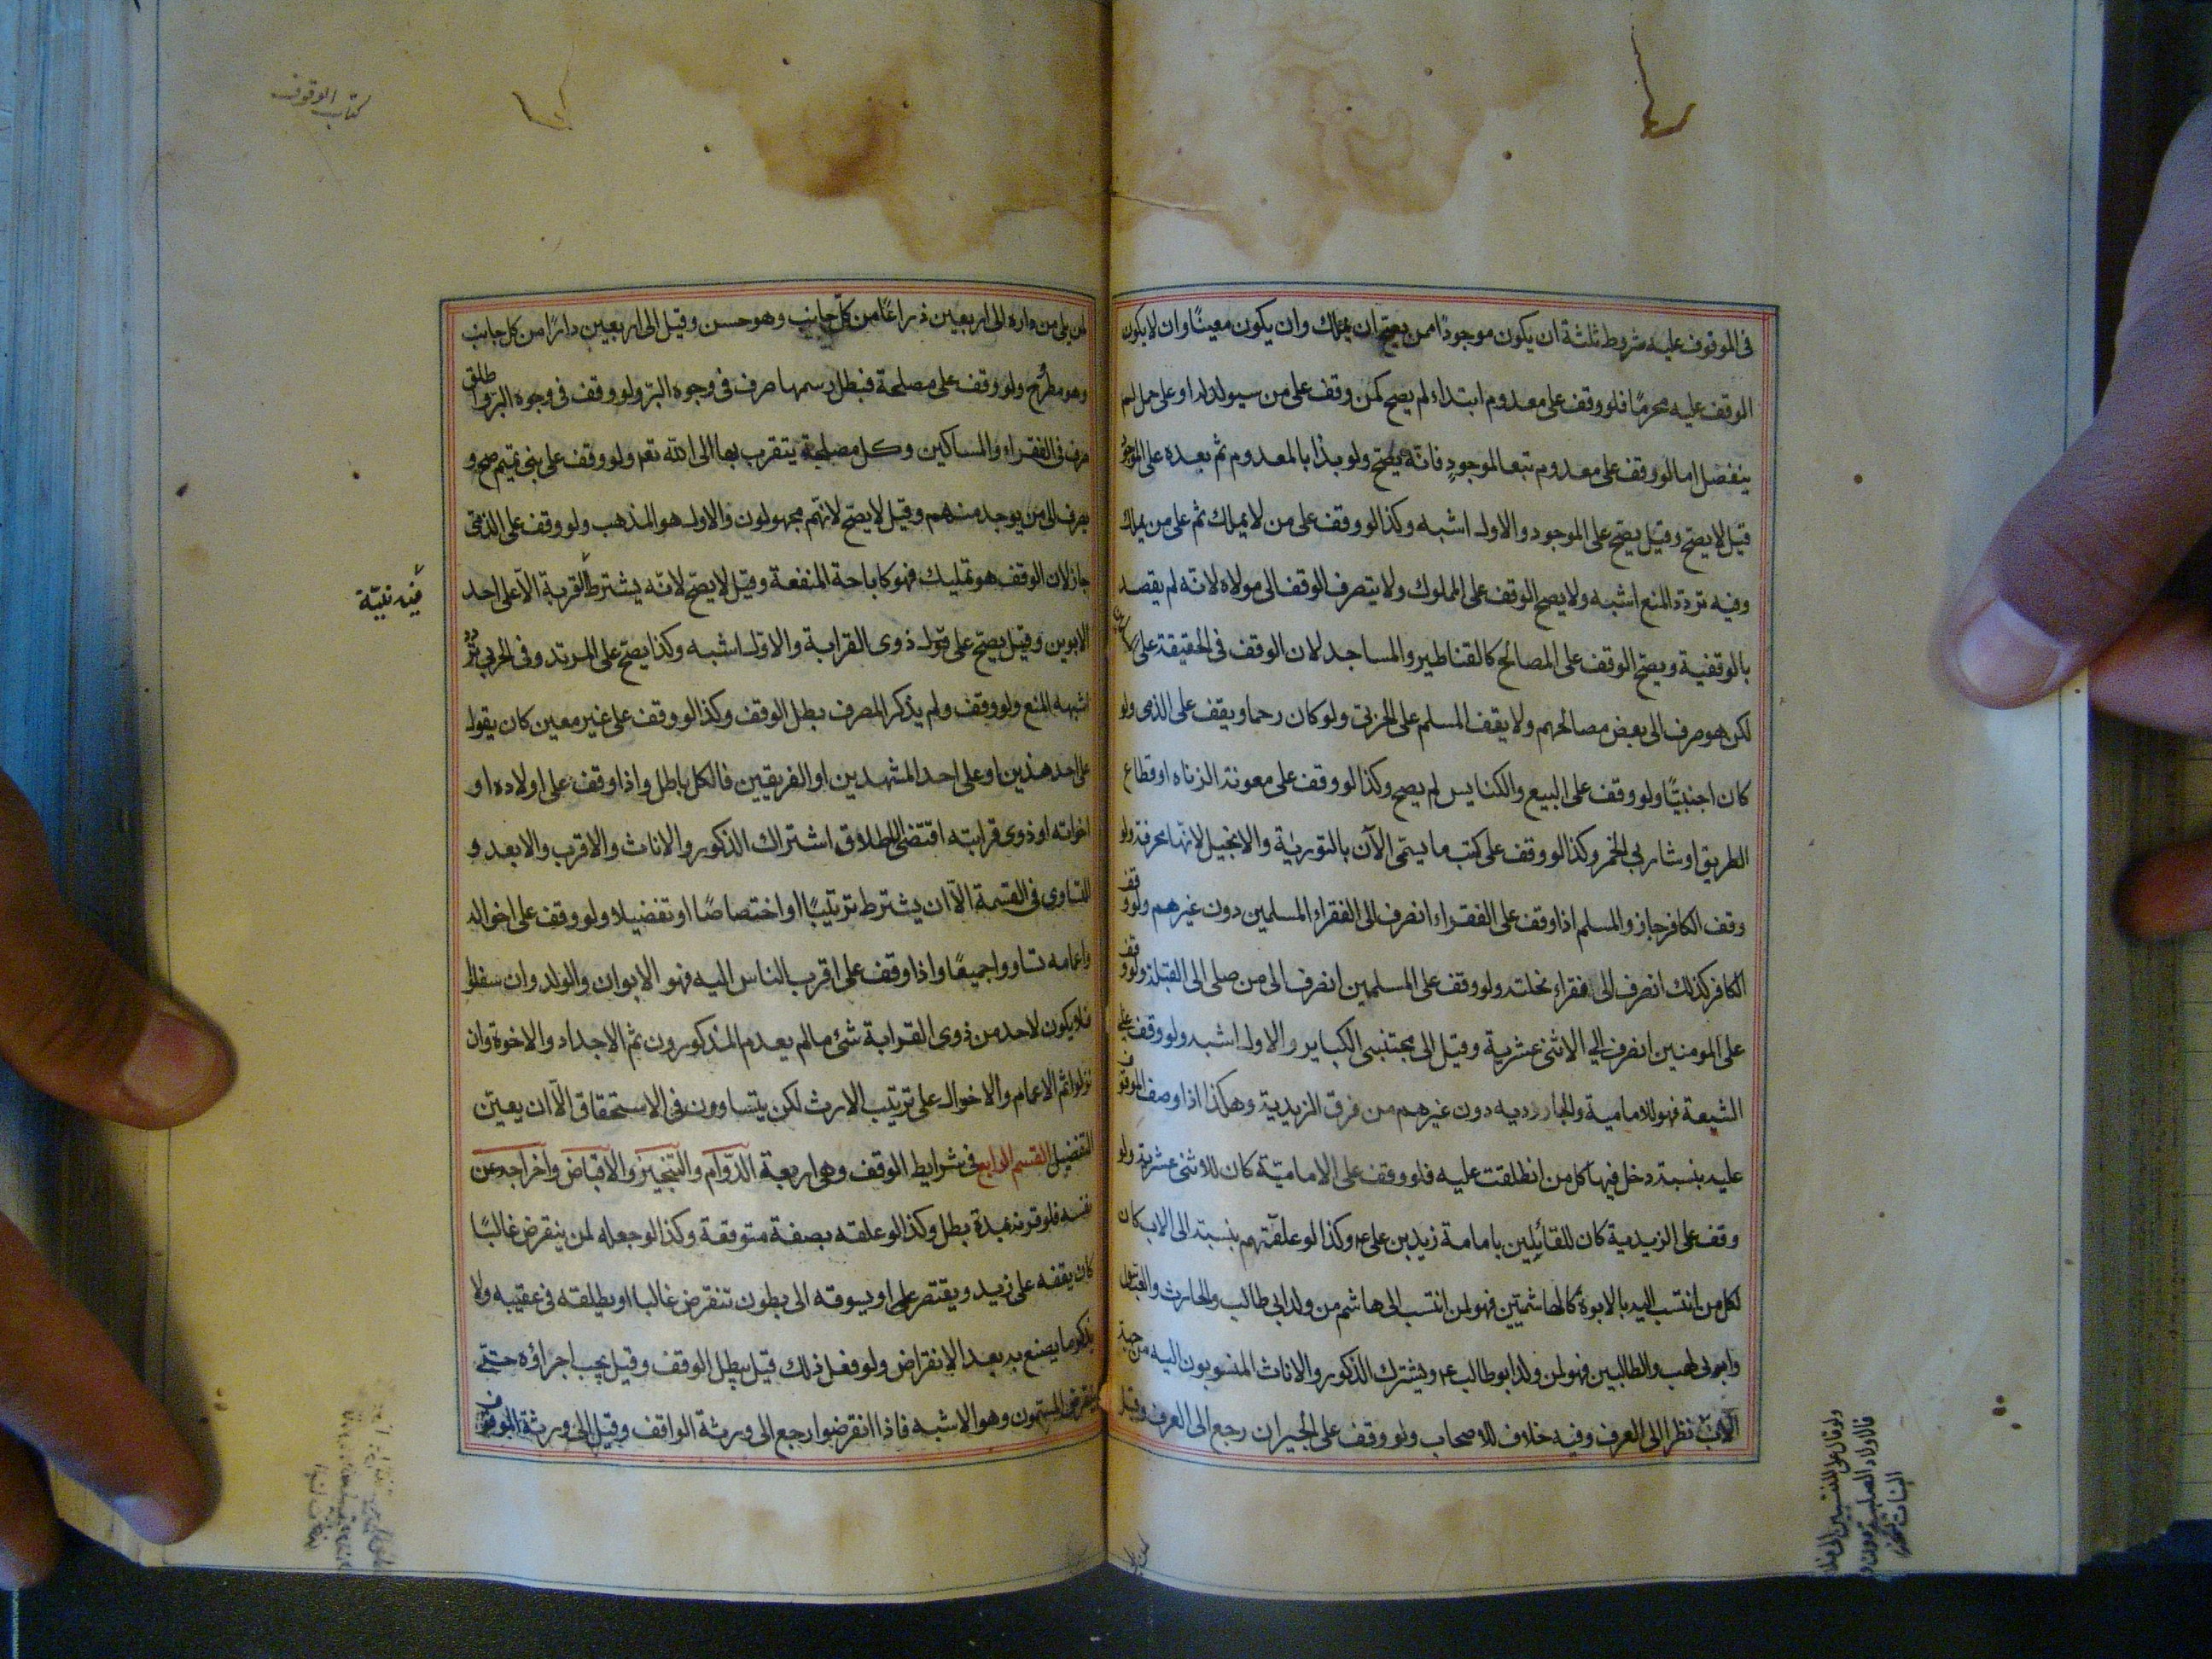 في الموقوف عليه شروط ثلثة ان يكون موجودًا ممن يصح ان يملك وان يكون معينًا وان لا يكون
الوقف عليه محرمًا فلو وقف على معدوم ابتداء لم يصح كمن وقف على من سيولد له او على حمل لم
ينفصل اما لو وقف على معدوم تبعا لموجودٍ فانّه يصحّ ولو بدا بالمعدوم ثم بعده على الموجود
قيل لا يصح وقيل يصح على الموجود والاول اشبه وكذا لو وقف على من لا يملك ثم على من يملك
وفيه تردد المنع اشبه ولا يصح الوقف على المملوك ولا يتصرف الوقف الى مولاه لانّه لم يقصد
بالوقفية ويصح الوقف على المصالح كالقناطير والمساجد لان الوقف في الحقيقة على
لكن هو صرف الى بعض مصالحهم ولا يقف المسلم على الحربيّ ولو كان رحما ويقف على الذمى ولو
كان اجنبيًّا ولو وقف على البيع والكنايس لم يصح وكذا لو وقف على معونة الزناه او قطاع
الطريق او شاربي الخمر وكذا لو وقف على كتب ما يسمّى الآن بالتورية والانجيل لانّها محرفة ولو
وقف الكافر جاز والمسلم اذا وقف على الفقراء انصرف الى الفقراء المسلمين دون غيرهم ولو وقف
الكافر كذلك انصرف الى فقراء نحلته ولو وقف على المسلمين انصرف الى من صلى الى القبلة ولو وقف
على المومنين انصرف الى الاثنى عشرية وقيل الى مجتنبى الكباير والاول اشبه ولو وقف على
الشيعة فهو للامامية والجاروديه دون غيرهم من فرق الزيدية وهكذا اذا وصف الموقوف
عليه بنسبة دخل فيها كل من انطلقت عليه فلو وقف على الاماميّة كان للاثنى عشرية ولو
وقف على الزيدية كان للقائلين بامامة زيد بن على ع وكذا لو علّقهم بنسبة الى الاب كان
لكل من انتسب اليه بالابوة كالهاشميّين فهو لمن انتسب الى هاشم من ولد ابى طالب والحارث والعباس
وابي لهب والطالبين فهو لمن ولد ابو طالب ع ويشترك الذكور والاناث المنسوبون اليه من جهة
الاب نظرا الى العرف وفيه خلاف للاصحاب ولو وقف على الجيران رجع الى العرف وقيل
كتاب الوقوف
لمن يلى من داره الى اربعين ذراعًا من كلّ جانب وهو حسن وقيل الى اربعين دارًا من كل جانب
وهو مطرح ولو وقف على مصلحة فبطل رسمها صرف في وجوه البرّ ولو وقف في وجوه البر واطلق
صرف في الفقراء والمساكين وكل مصلحة يتقرب بها الى الله تع ولو وقف على بني تميم صح و
يصرف الى من يوجد منهم وقيل لا يصح لانّهم مجهولون والاول هو المذهب ولو وقف على الذمّى
جاز لان الوقف هو تمليك فهو كاباحة المنفعة وقيل لا يصحّ لانّه يشترط القربة الّا على احد
الابوين وقيل يصح على ذوى القرابة والاوّل اشبه وكذا يصحّ على المرتد وفي الحربي تردد
اشبهه المنع ولو وقف ولم يذكر المصرف بطل الوقف وكذا لو وقف على غير معين كان يقول
على احد هذين او على احد المشهدين او الفريقين فالكل باطل واذا وقف على اولاده او
اخواته او ذوى قرابته اقتضى الاطلاق اشتراك الذكور والاناث والاقرب والابعد و
التساوى في القسمة الّا ان يشترط ترتيبًا او اختصاصًا او تفضيلا ولو وقف على اخواله
واعمامه تساووا جميعًا واذا وقف على اقرب الناس اليه فهو الابوان والولد وان سفلوا
فلا يكون لاحد من ذوى القرابة شئ ما لم يعدم المذكورون ثم الاجداد والاخوة وان
نزلوا ثم الاعمام والاخوال على ترتيب الارث لكن يتساوون في الاستحقاق الّا ان يعين
التفضيل القسم الرابع في شرايط الوقف وهى اربعة الدوام والتنجيز والاقباض واخراجه عن
نفسه فلو قرنه بمدة بطل وكذا لو علقه بصفة متوقعة وكذا لو جعله لمن ينقرض غالبًا
كان يقفه على زيد ويقتصر عليه او يسوقه الى بطون تنقرض غالبا او يطلقه في عقبه ولا
يذكر ما يصنع به بعد الانقراض ولو فعل ذلك قيل يبطل الوقف وقيل يجب اجراؤه حتّى
ينقرض المسمّون وهو الاشبه فاذا انقرضوا رجع الى ورثة الواقف وقيل الى ورثة الموقوف